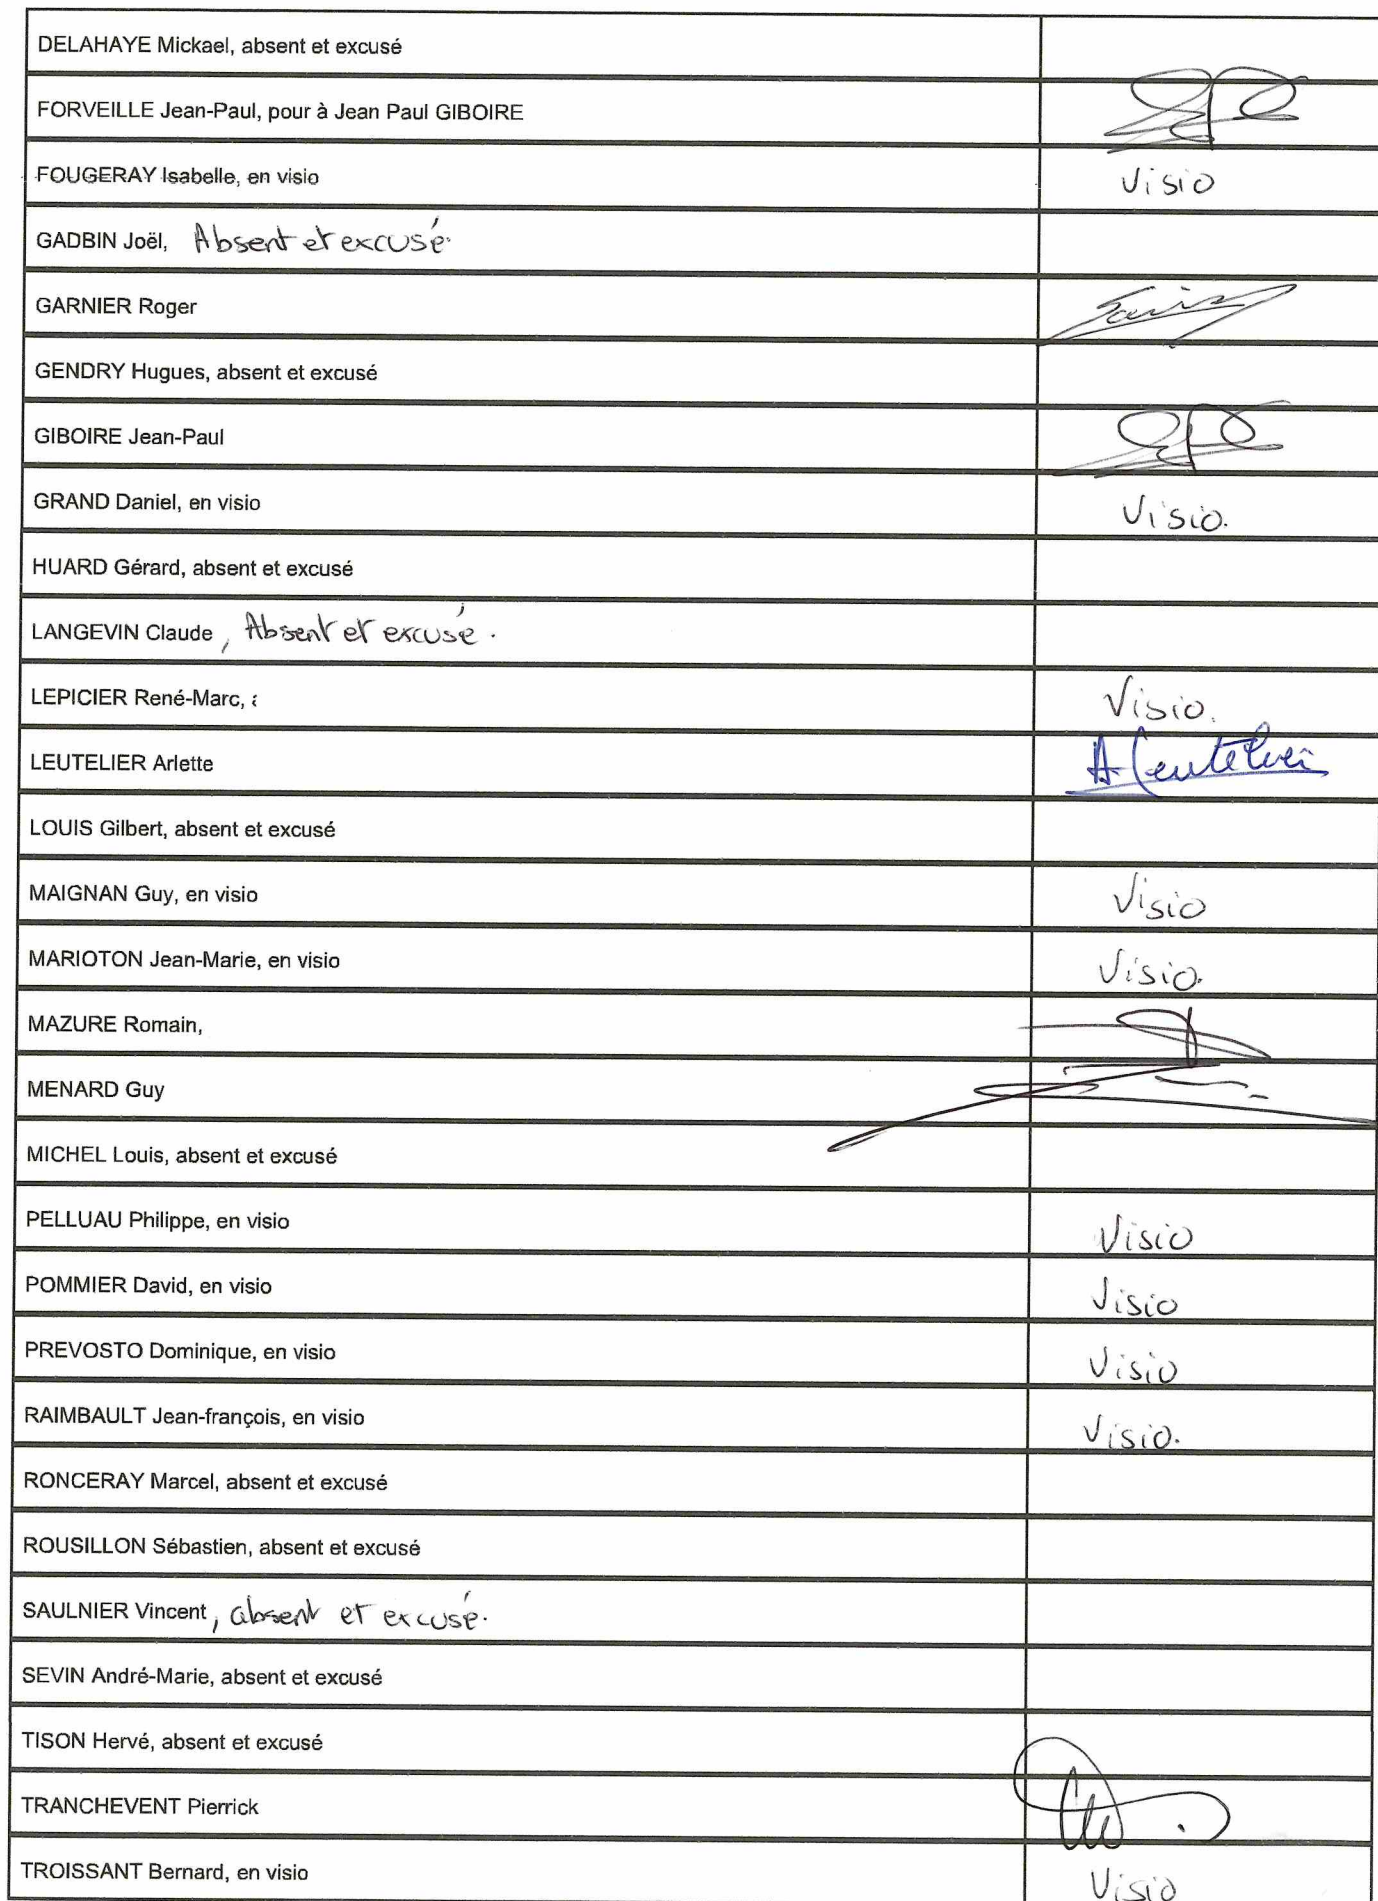 DELAHAYE Mickael, absent et excusé
FORVEILLE Jean-Paul, pour à Jean Paul GIBOIRE
FOUGERAY Isabelle, en visio Visio
GADBIN Joël, Absent et excusé.
GARNIER Roger
GENDRY Hugues, absent et excusé
GIBOIRE Jean-Paul
GRAND Daniel, en visio Visio.
HUARD Gérard, absent et excusé
LANGEVIN Claude, Absent et excusé.
LEPICIER René-Marc, Visio.
LEUTELIER Arlette A Leutelier
LOUIS Gilbert, absent et excusé
MAIGNAN Guy, en visio Visio
MARIOTON Jean-Marie, en visio Visio.
MAZURE Romain,
MENARD Guy
MICHEL Louis, absent et excusé
PELLUAU Philippe, en visio Visio
POMMIER David, en visio Visio
PREVOSTO Dominique, en visio Visio
RAIMBAULT Jean-françois, en visio Visio.
RONCERAY Marcel, absent et excusé
ROUSILLON Sébastien, absent et excusé
SAULNIER Vincent, absent et excusé.
SEVIN André-Marie, absent et excusé
TISON Hervé, absent et excusé
TRANCHEVENT Pierrick
TROISSANT Bernard, en visio Visio